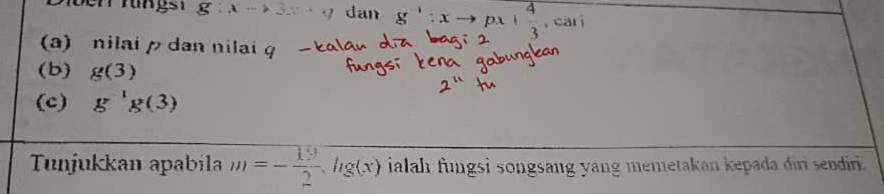 Diberi fungsi g : x → 3x + q dan g⁻¹ : x → px + 4/3, cari
(a) nilai p dan nilai q - kalau dia bagi 2
(b) g(3) fungsi kena gabungkan
(c) g⁻¹g(3) 2" tu
Tunjukkan apabila m = -19/2, hg(x) ialah fungsi songsang yang memetakan kepada diri sendiri.